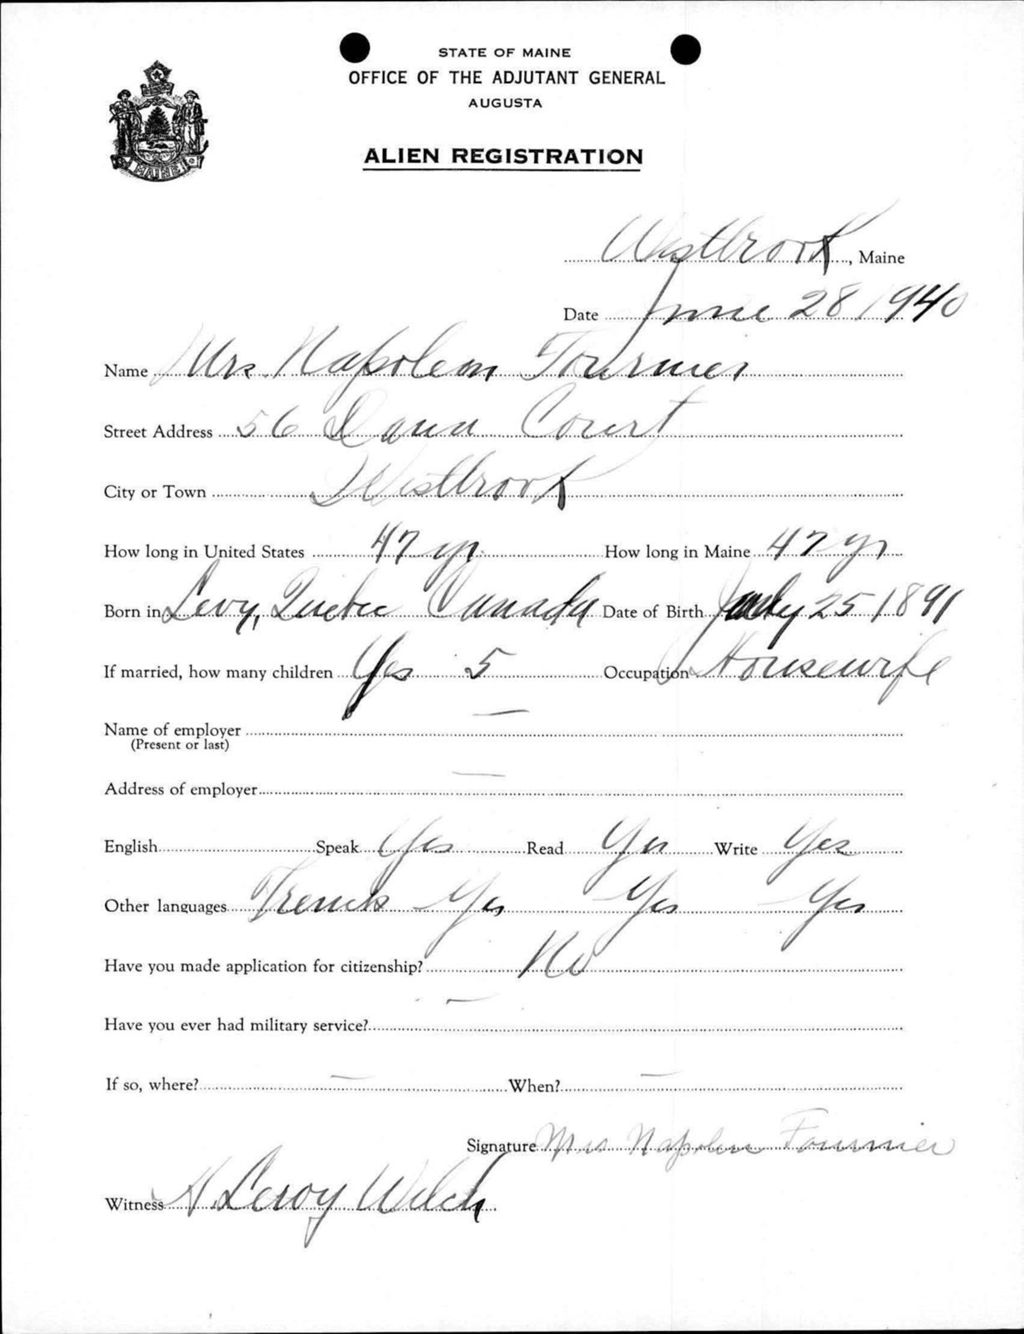 STATE OF MAINE
OFFICE OF THE ADJUTANT GENERAL
AUGUSTA
ALIEN REGISTRATION
MAINE
Westbrook, Maine
Date June 28 1940
Name Mrs. Napoleon Fournier
Street Address 56 Dana Court
City or Town Westbrook
How long in United States 47 yr. How long in Maine 47 yr
Born in Levy, Quebec Canada Date of Birth July 25 1891
If married, how many children Yes 5 Occupation Housewife
Name of employer —
(Present or last)
Address of employer —
English Speak Yes Read Yes Write Yes
Other languages French Yes Yes Yes
Have you made application for citizenship? No
Have you ever had military service? —
If so, where? — When? —
Signature Mrs Napoleon Fournier
Witness H. Leroy Welch